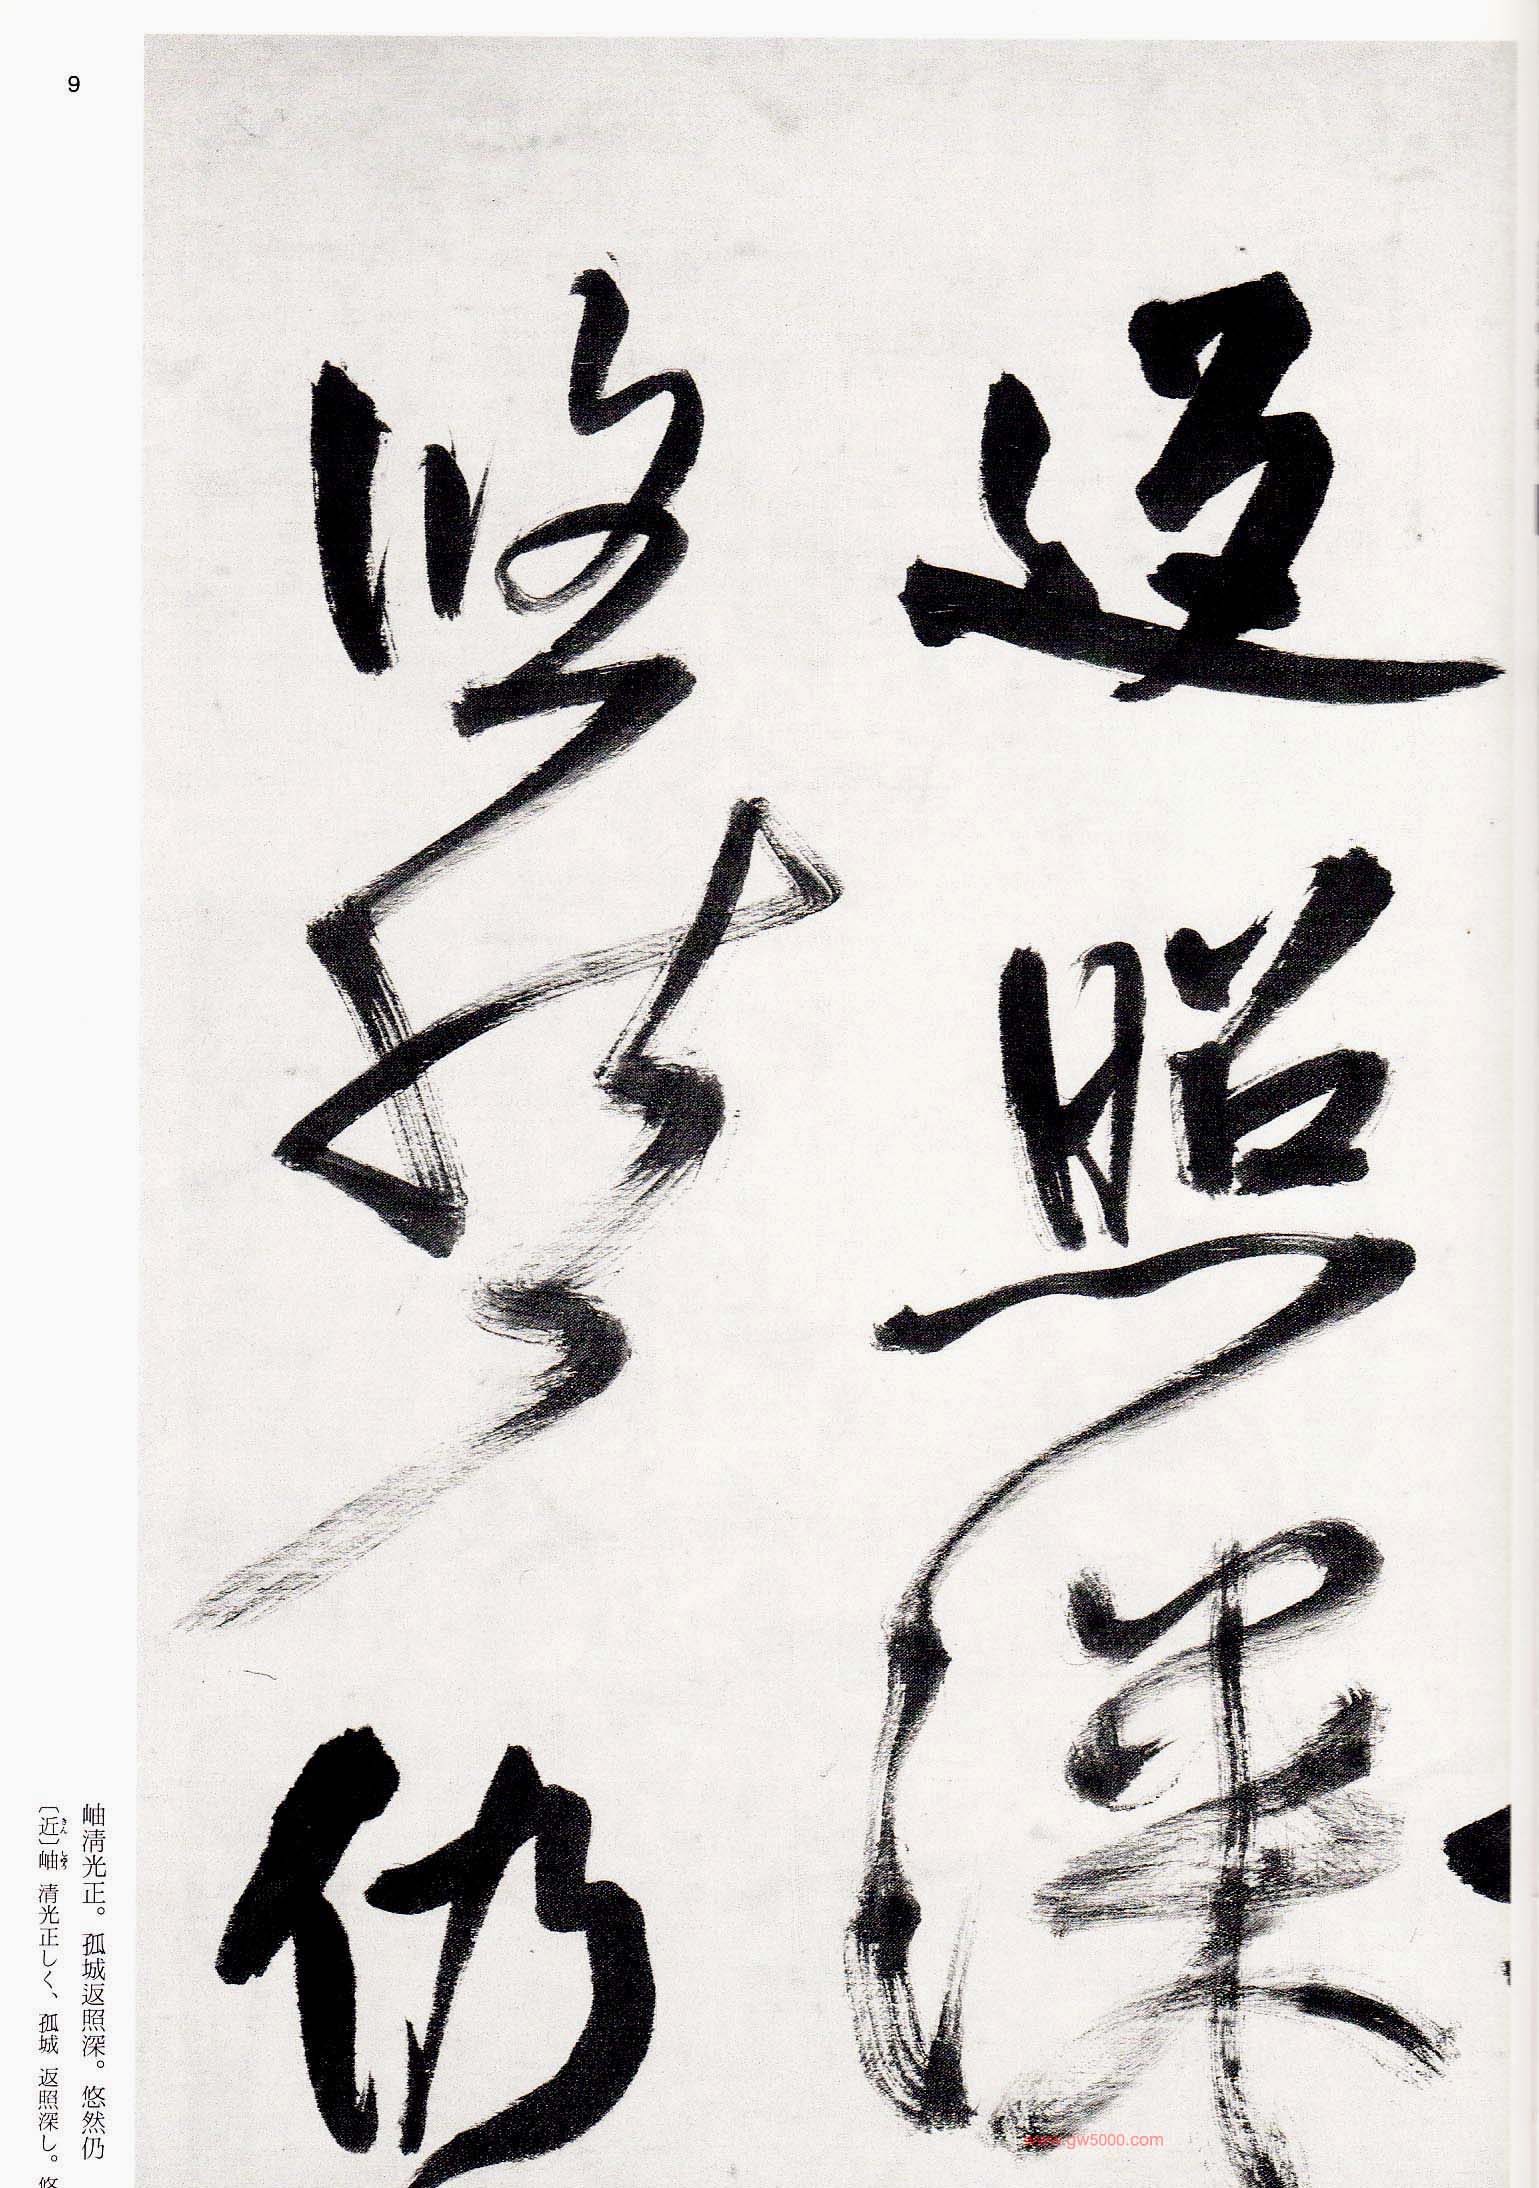 9
返照深
悠然仍
岫淸光正。孤城返照深。悠然仍
〔近〕岫 清光正しく、孤城 返照深し。悠
きん しゅう
www.gw5000.com